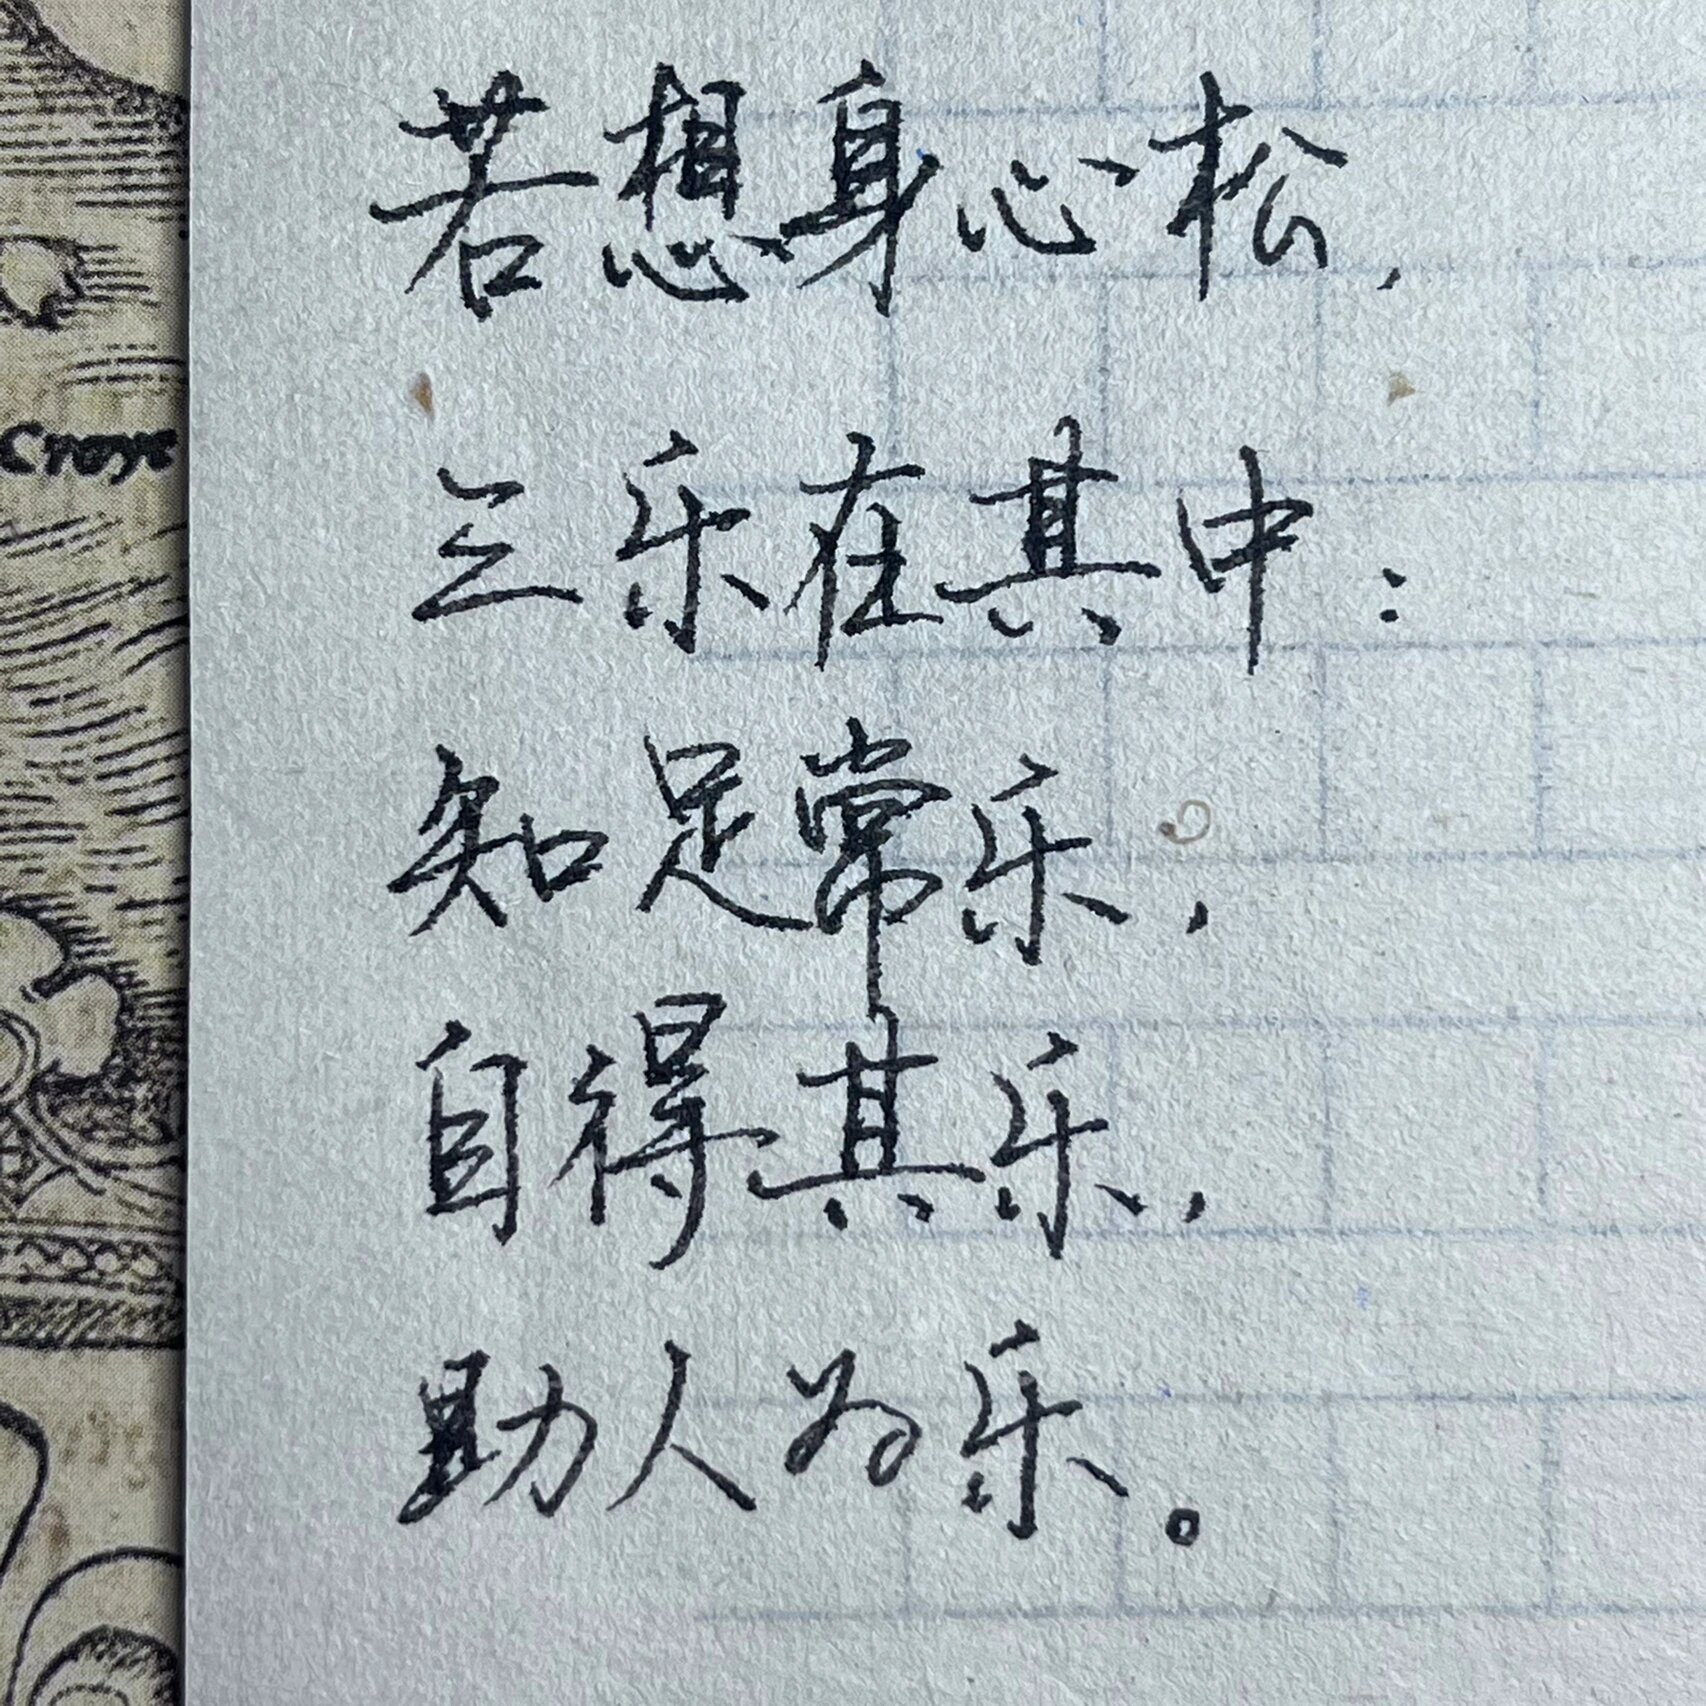 若想身心松，
三乐在其中：
知足常乐，
自得其乐，
助人为乐。
Croye